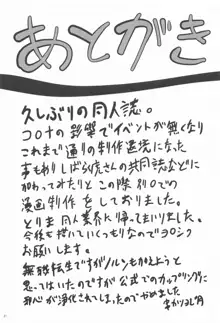 あとがき
久しぶりの同人誌。
コロナの影響でイベントが無くなり
これまで通りの制作環境になる
事もありしばらく虎さんの共同誌などに
かわってみたりとこの際別口での
漫画制作をしておりました。
とりま同人業界に帰ってまいりました。
今後も描いていくつもりなのでヨロシク
お願いします。
無職転生ですがノルンもかえようと
思ってはいたのですが公式でのカップリングに
邪心が浄化されてしまったのでやめました